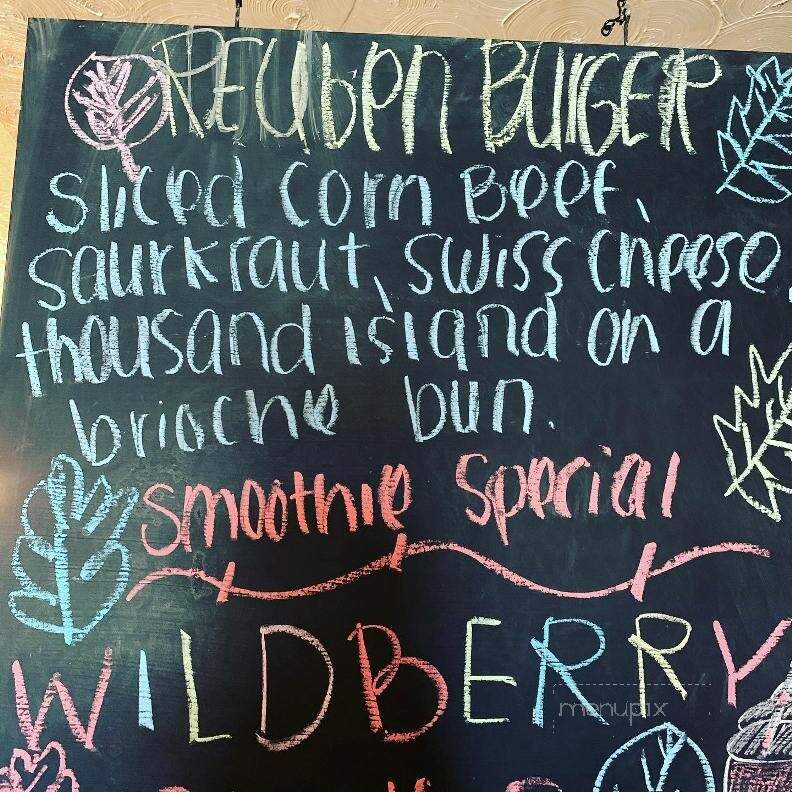 REUben BURGER
sliced corn Beef,
saurkraut, swiss cheese,
thousand island on a
brioche bun.
smoothie special
WILDBERRY
menupix